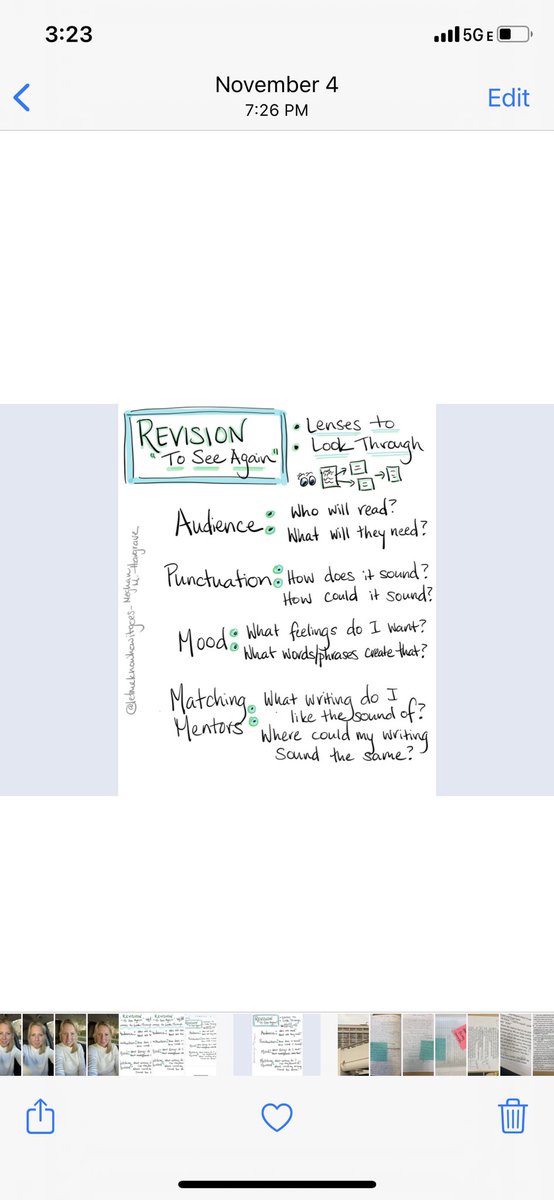 3:23
5G E
November 4
7:26 PM
Edit
REVISION
"To See Again"
• Lenses to
• Look Through
Audience: Who will read?
What will they need?
Punctuation: How does it sound?
How could it sound?
Mood: What feelings do I want?
What words/phrases create that?
Matching Mentors: What writing do I
like the sound of?
Where could my writing
sound the same?
@letmeknowhowitgoes - Meghan
Hargrave